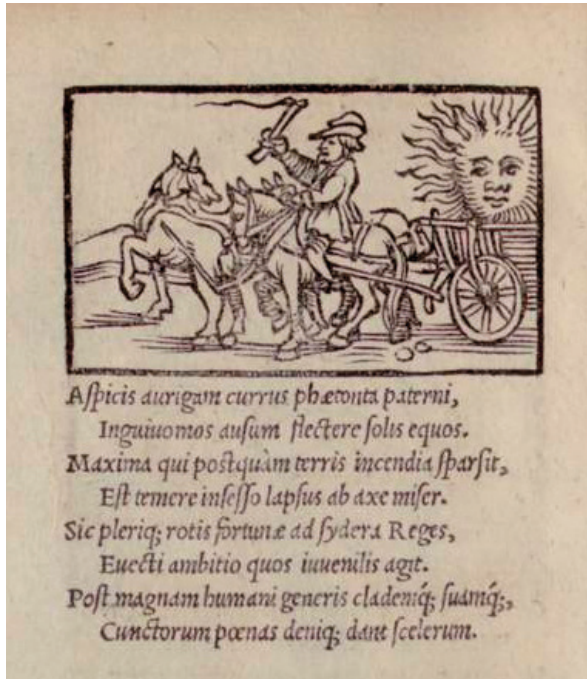 Aſpicis aurigam currus phætonta paterni,
Inguiuomos auſum flectere ſolis equos.
Maxima qui poſtquàm terris incendia ſparſit,
Eſt temere inſeſſo lapſus ab axe miſer.
Sic pleriq; rotis fortunæ ad ſydera Reges,
Euecti ambitio quos iuuenilis agit.
Poſt magnam humani generis clademq́; ſuamq́;,
Cunctorum pœnas deniq; dant ſcelerum.